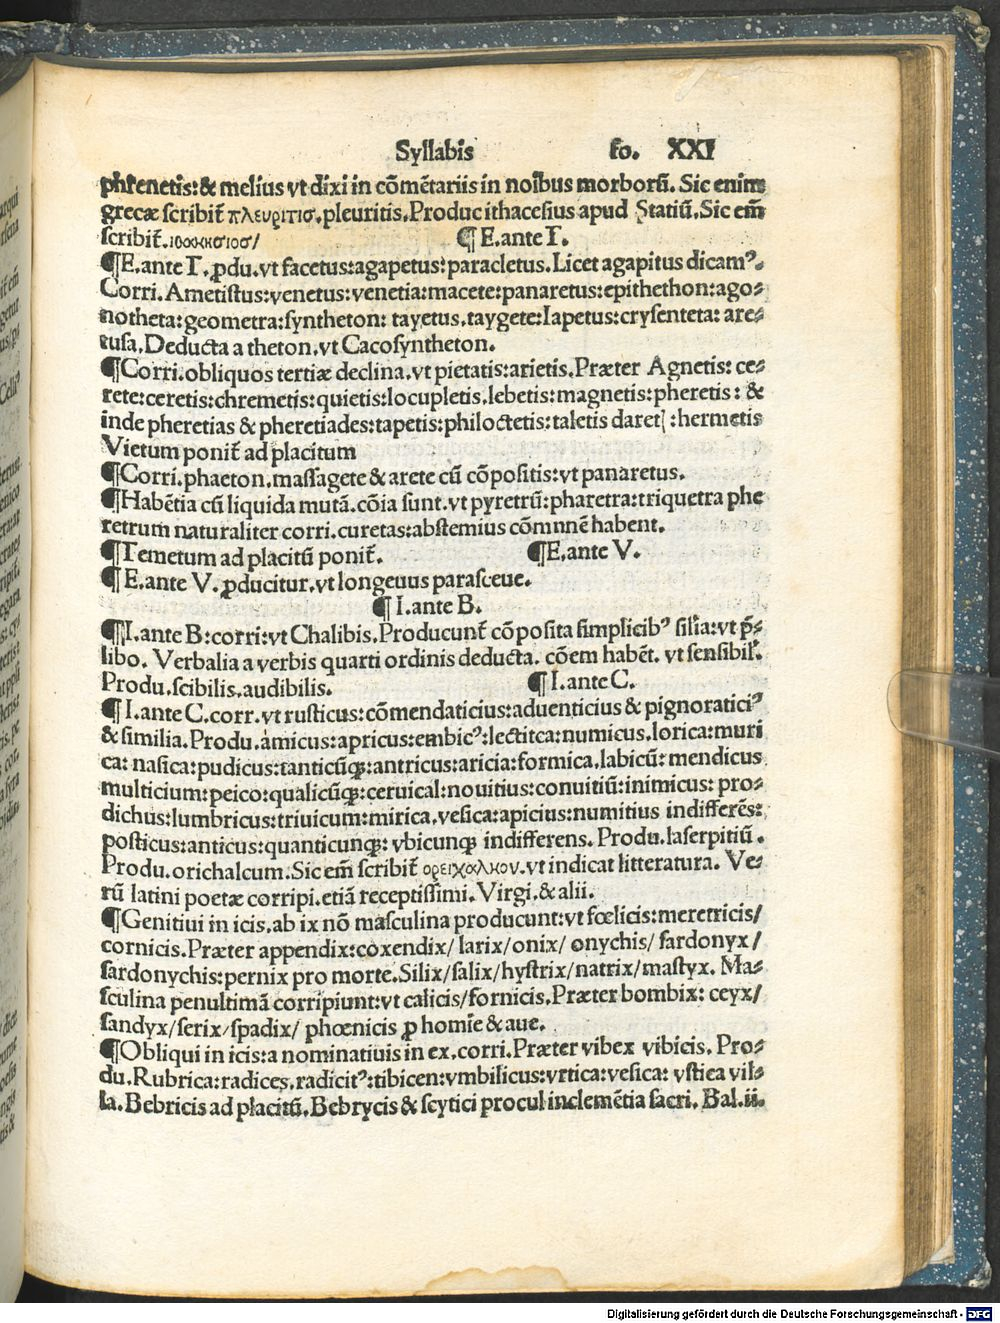 Syllabis fo. XXI
phrenetis:& melius vt dixi in cōmētariis in noībus morborū. Sic enim
grecæ scribit̄ πλευριτισ.pleuritis.Produc ithacesius apud Statiū.Sic em̄
scribit̄. ¶ E.ante T.
¶E.ante T.ꝓdu.vt facetus:agapetus:paracletus.Licet agapitus dicamꝰ.
Corri.Ametistus:venetus:venetia:macete:panaretus:epithethon:ago⸗
notheta:geometra:syntheton: tayetus.taygete:Iapetus:crysenteta: are⸗
tusa.Deducta a theton.vt Cacosyntheton.
¶Corri.obliquos tertiæ declina.vt pietatis:arietis.Præter Agnetis: ce⸗
rete:ceretis:chremetis:quietis:locupletis.lebetis:magnetis:pheretis: &
inde pheretias & pheretiades:tapetis:philoctetis:taletis :hermetis
Vietum ponit̄ ad placitum
¶Corri.phaeton.massagete & arete cū cōpositis:vt panaretus.
¶Habētia cū liquida mutā.cōia sunt.vt pyretrū:pharetra:triquetra phe
retrum naturaliter corri.curetas:abstemius cōmnnē habent.
¶Temetum ad placitū ponit̄. ¶E.ante V.
¶ E.ante V.ꝓducitur.vt longeuus parasceue.
¶ I.ante B.
¶I.ante B:corri:vt Chalibis.Producunt̄ cōposita simplicibꝰ silia:vt p̄⸗
libo. Verbalia a verbis quarti ordinis deducta. cōem habēt. vt sensibil̄.
Produ.scibilis.audibilis. ¶ I.ante C.
¶ I.ante C.corr.vt rusticus:cōmendaticius:aduenticius & pignoraticiꝰ
& similia.Produ.amicus:apricus:embicꝰ:lectitca:numicus.lorica:muri
ca: nasica:pudicus:tanticūꝗꝫ:antricus:aricia:formica.labicū: mendicus
multicium:peico:qualicūꝗꝫ:ceruical:nouitius:conuitiū:inimicus: pro⸗
dichus:lumbricus:triuicum:mirica.vesica:apicius:numitius indifferēs:
posticus:anticus:quanticunꝗꝫ: vbicunꝗꝫ indifferens. Produ.laserpitiū.
Produ.orichalcum.Sic em̄ scribit̄ ορειχαλκον.vt indicat litteratura. Ve⸗
rū latini poetæ corripi.etiā receptissimi.Virgi.& alii.
¶Genitiui in icis.ab ix nō masculina producunt:vt fœlicis:meretricis/
cornicis.Præter appendix:coxendix/ larix/onix/ onychis/ sardonyx/
sardonychis:pernix pro morte.Silix/salix/hystrix/natrix/mastyx. Ma⸗
sculina penultimā corripiunt:vt calicis/fornicis.Præter bombix: ceyx/
sandyx/serix/spadix/ phœnicis ꝓ homīe & aue.
¶Obliqui in icis:a nominatiuis in ex.corri.Præter vibex vibicis. Pro⸗
du.Rubrica:radices.radicitꝰ:tibicen:vmbilicus:vrtica:vesica: vstica vil⸗
la.Bebricis ad placitū.Bebrycis & scytici procul inclemētia sacri. Bal.ii.
Digitalisierung gefördert durch die Deutsche Forschungsgemeinschaft - DFG